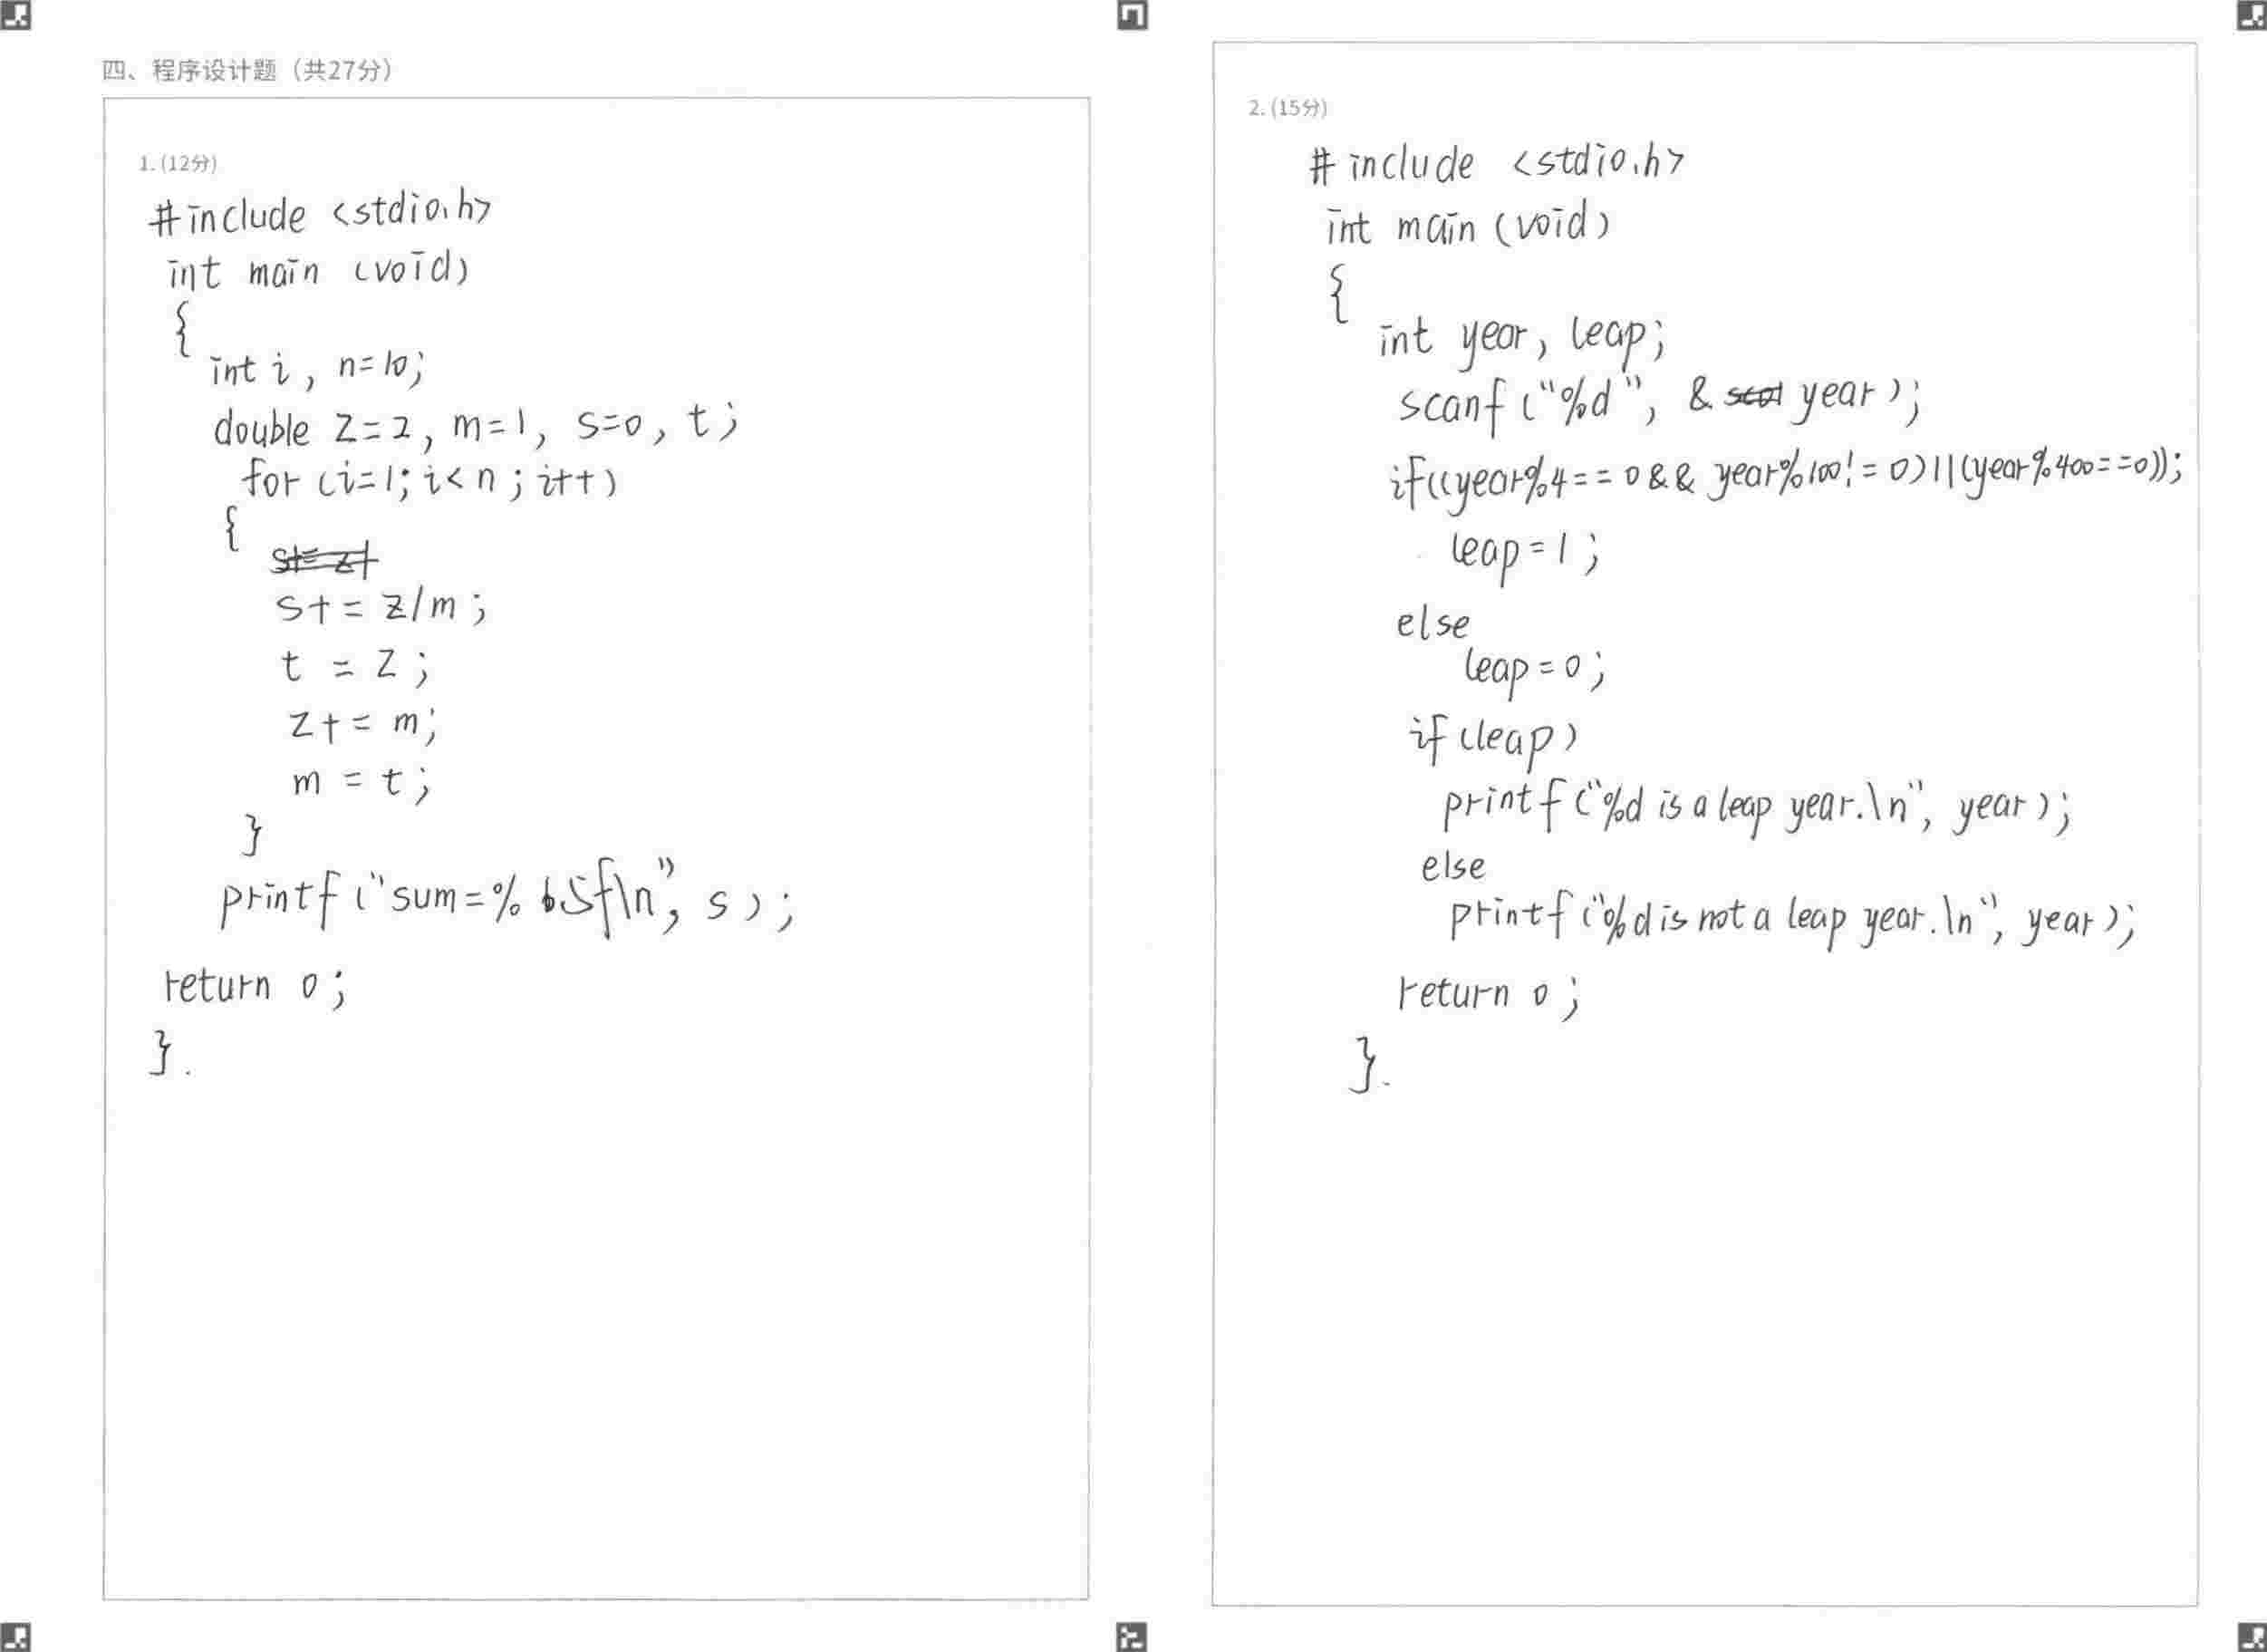 四、程序设计题（共27分）
1. (12分)
#include <stdio.h>
int main (void)
{
int i, n=10;
double z=2, m=1, s=0, t;
for (i=1; i<n; i++)
{
s+= z/m;
t = z;
z+= m;
m = t;
}
printf ("sum=% f\n", s);
return 0;
}.
2. (15分)
# include <stdio.h>
int main (void)
{
int year, leap;
scanf ("%d", & year);
if((year%4==0&& year%100!=0)||(year%400==0));
leap=1;
else
leap=0;
if (leap)
printf ("%d is a leap year.\n", year);
else
printf ("%d is not a leap year.\n", year);
return 0;
}.